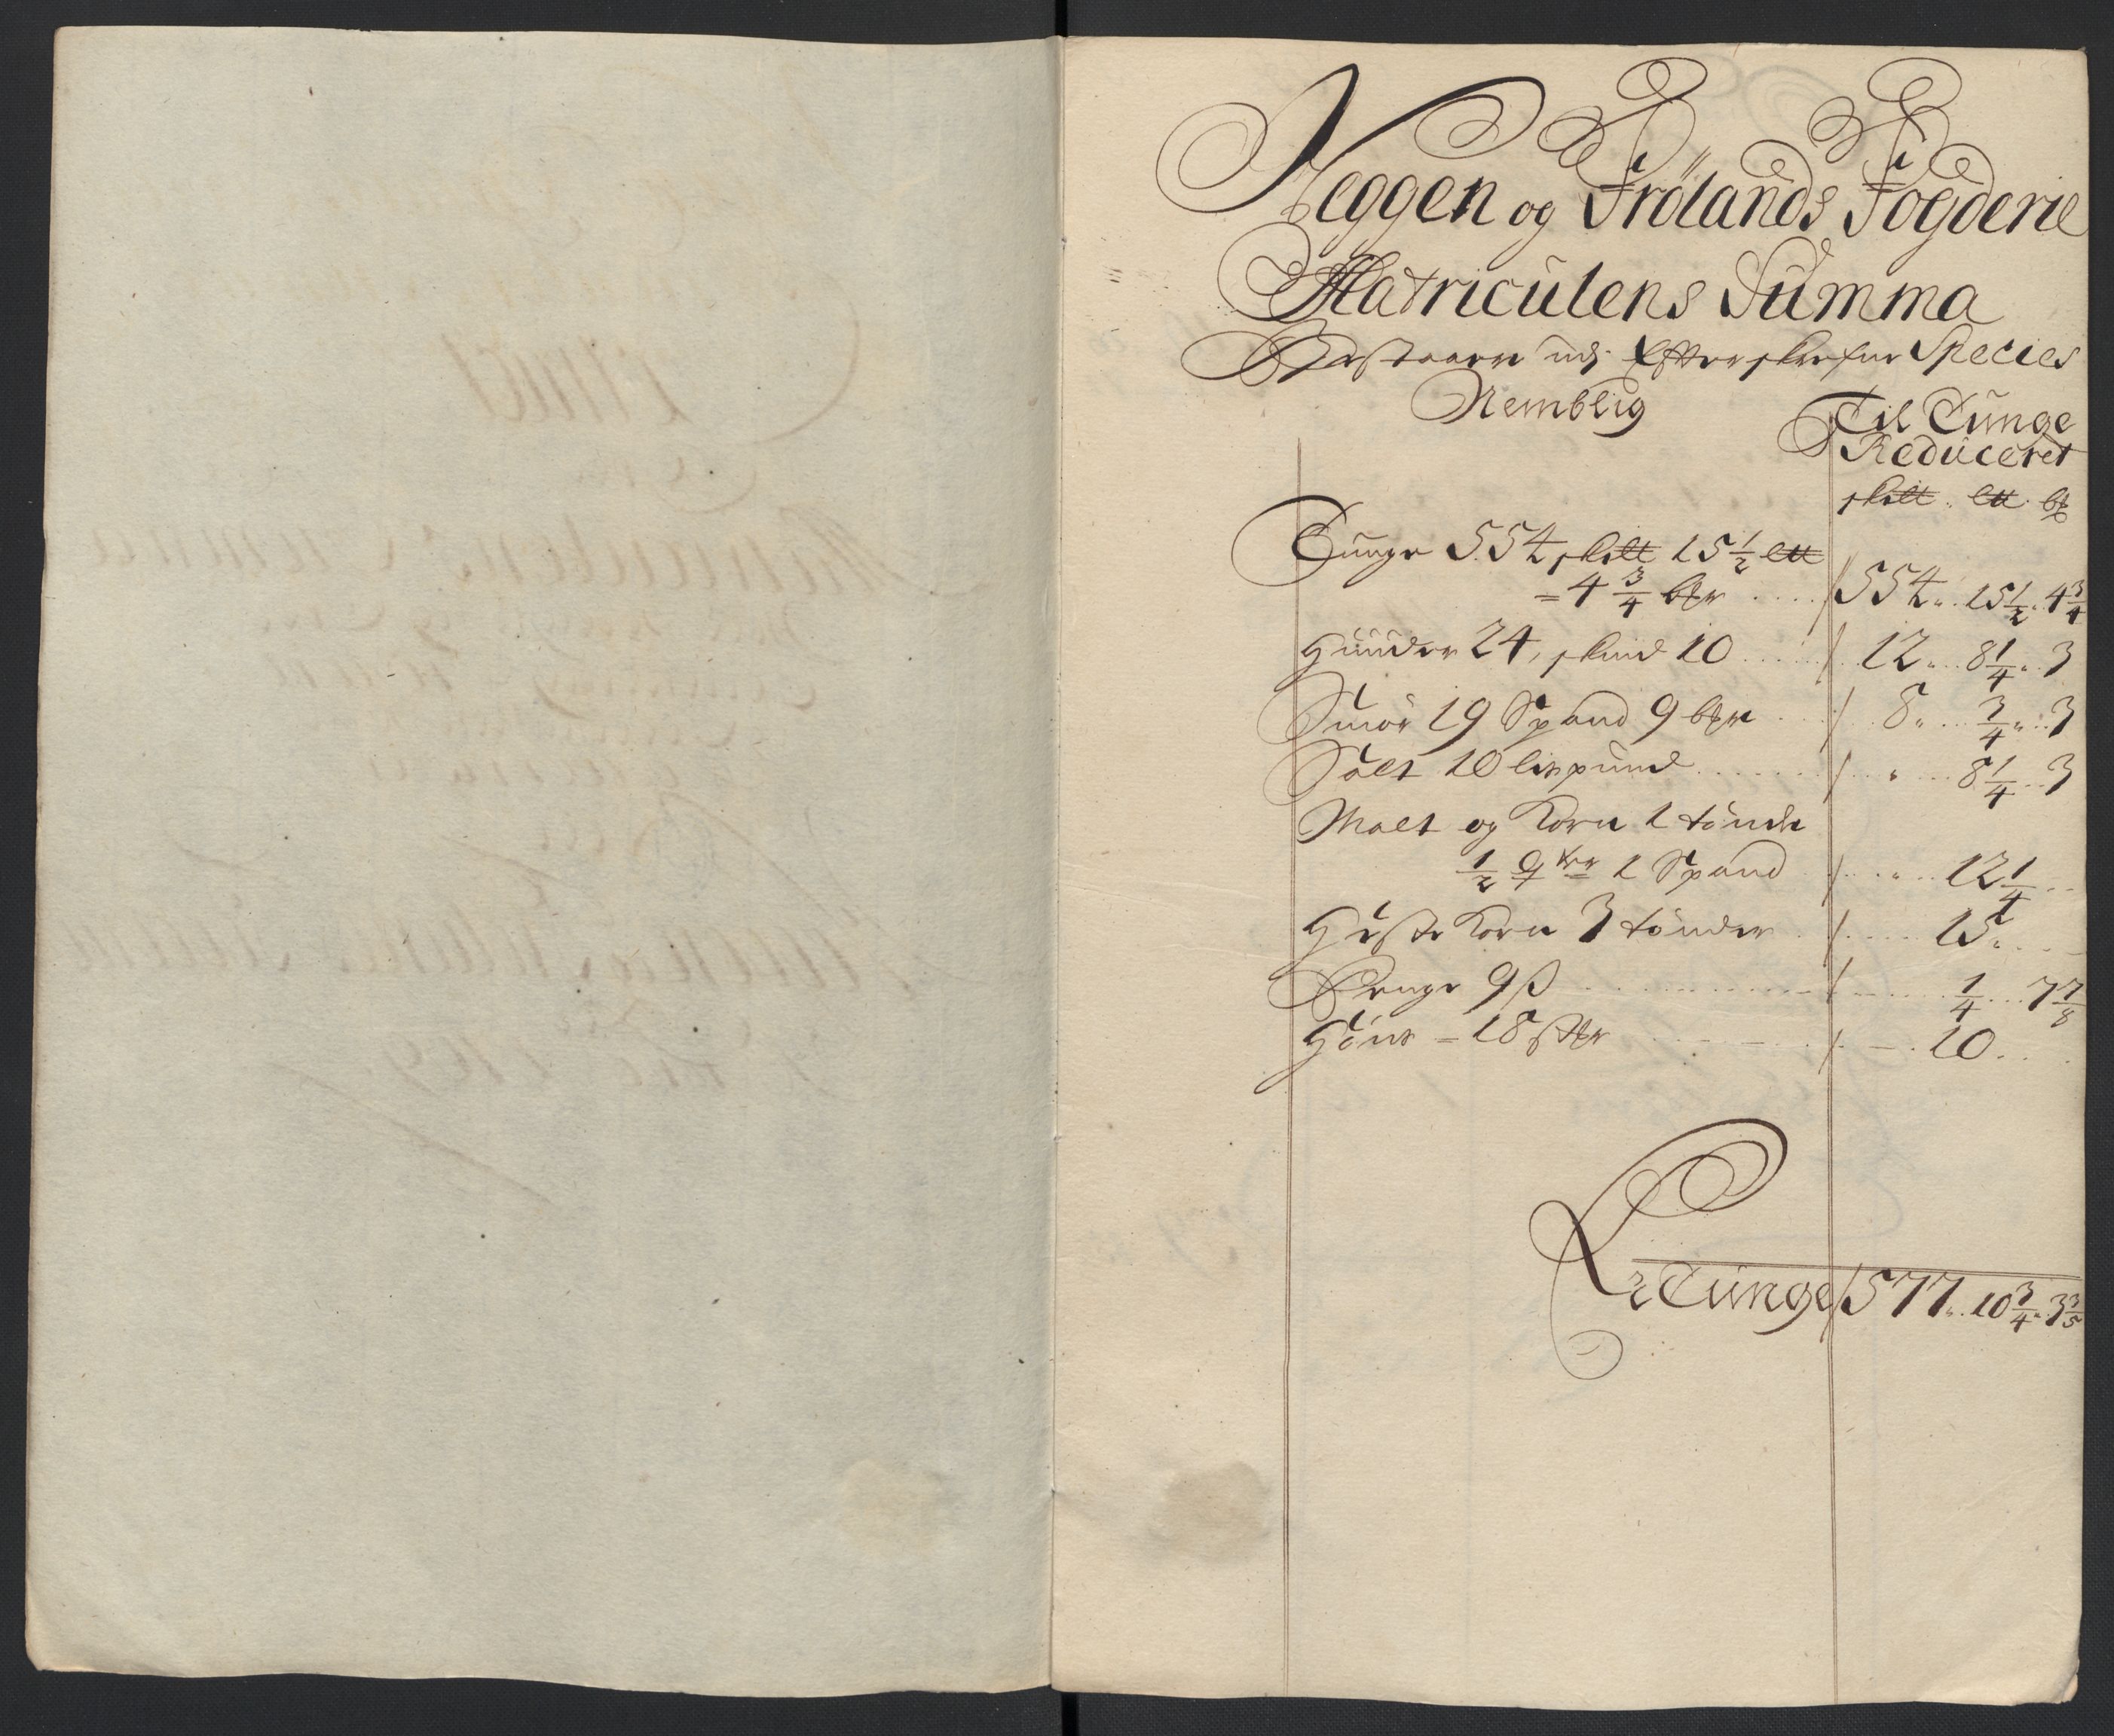 Heggen og Frölands Fogderie
Matriculens Summa
Bestaaer udj Efterskrefne Species
Nemblig
Til Tunge
Reduceret
skill ℔ bpd
Tunge 554 skill 15 1/2 ℔
= 4 3/4 bpr .... 554 .. 15 1/2 . 4 3/4
Huuder 24, skind 10 .... 12 .. 8 1/4 .. 3
Smör 19 Spand 9 bpr ... 8 .. 3/4 .. 3
Salt 10 lispund ...... 8 1/4 .. 3
Malt og Korn 1 tönde
1/2 qter 1 Spand ... 12 1/4 ..
Heste Korn 3 tönder .... 15 ..
Penge 9 ß ........ 1/4 ... 7 7/8
Höns = 18 str ..... 10 ..
Er Tunge 577 .. 10 3/4 . 3 3/5